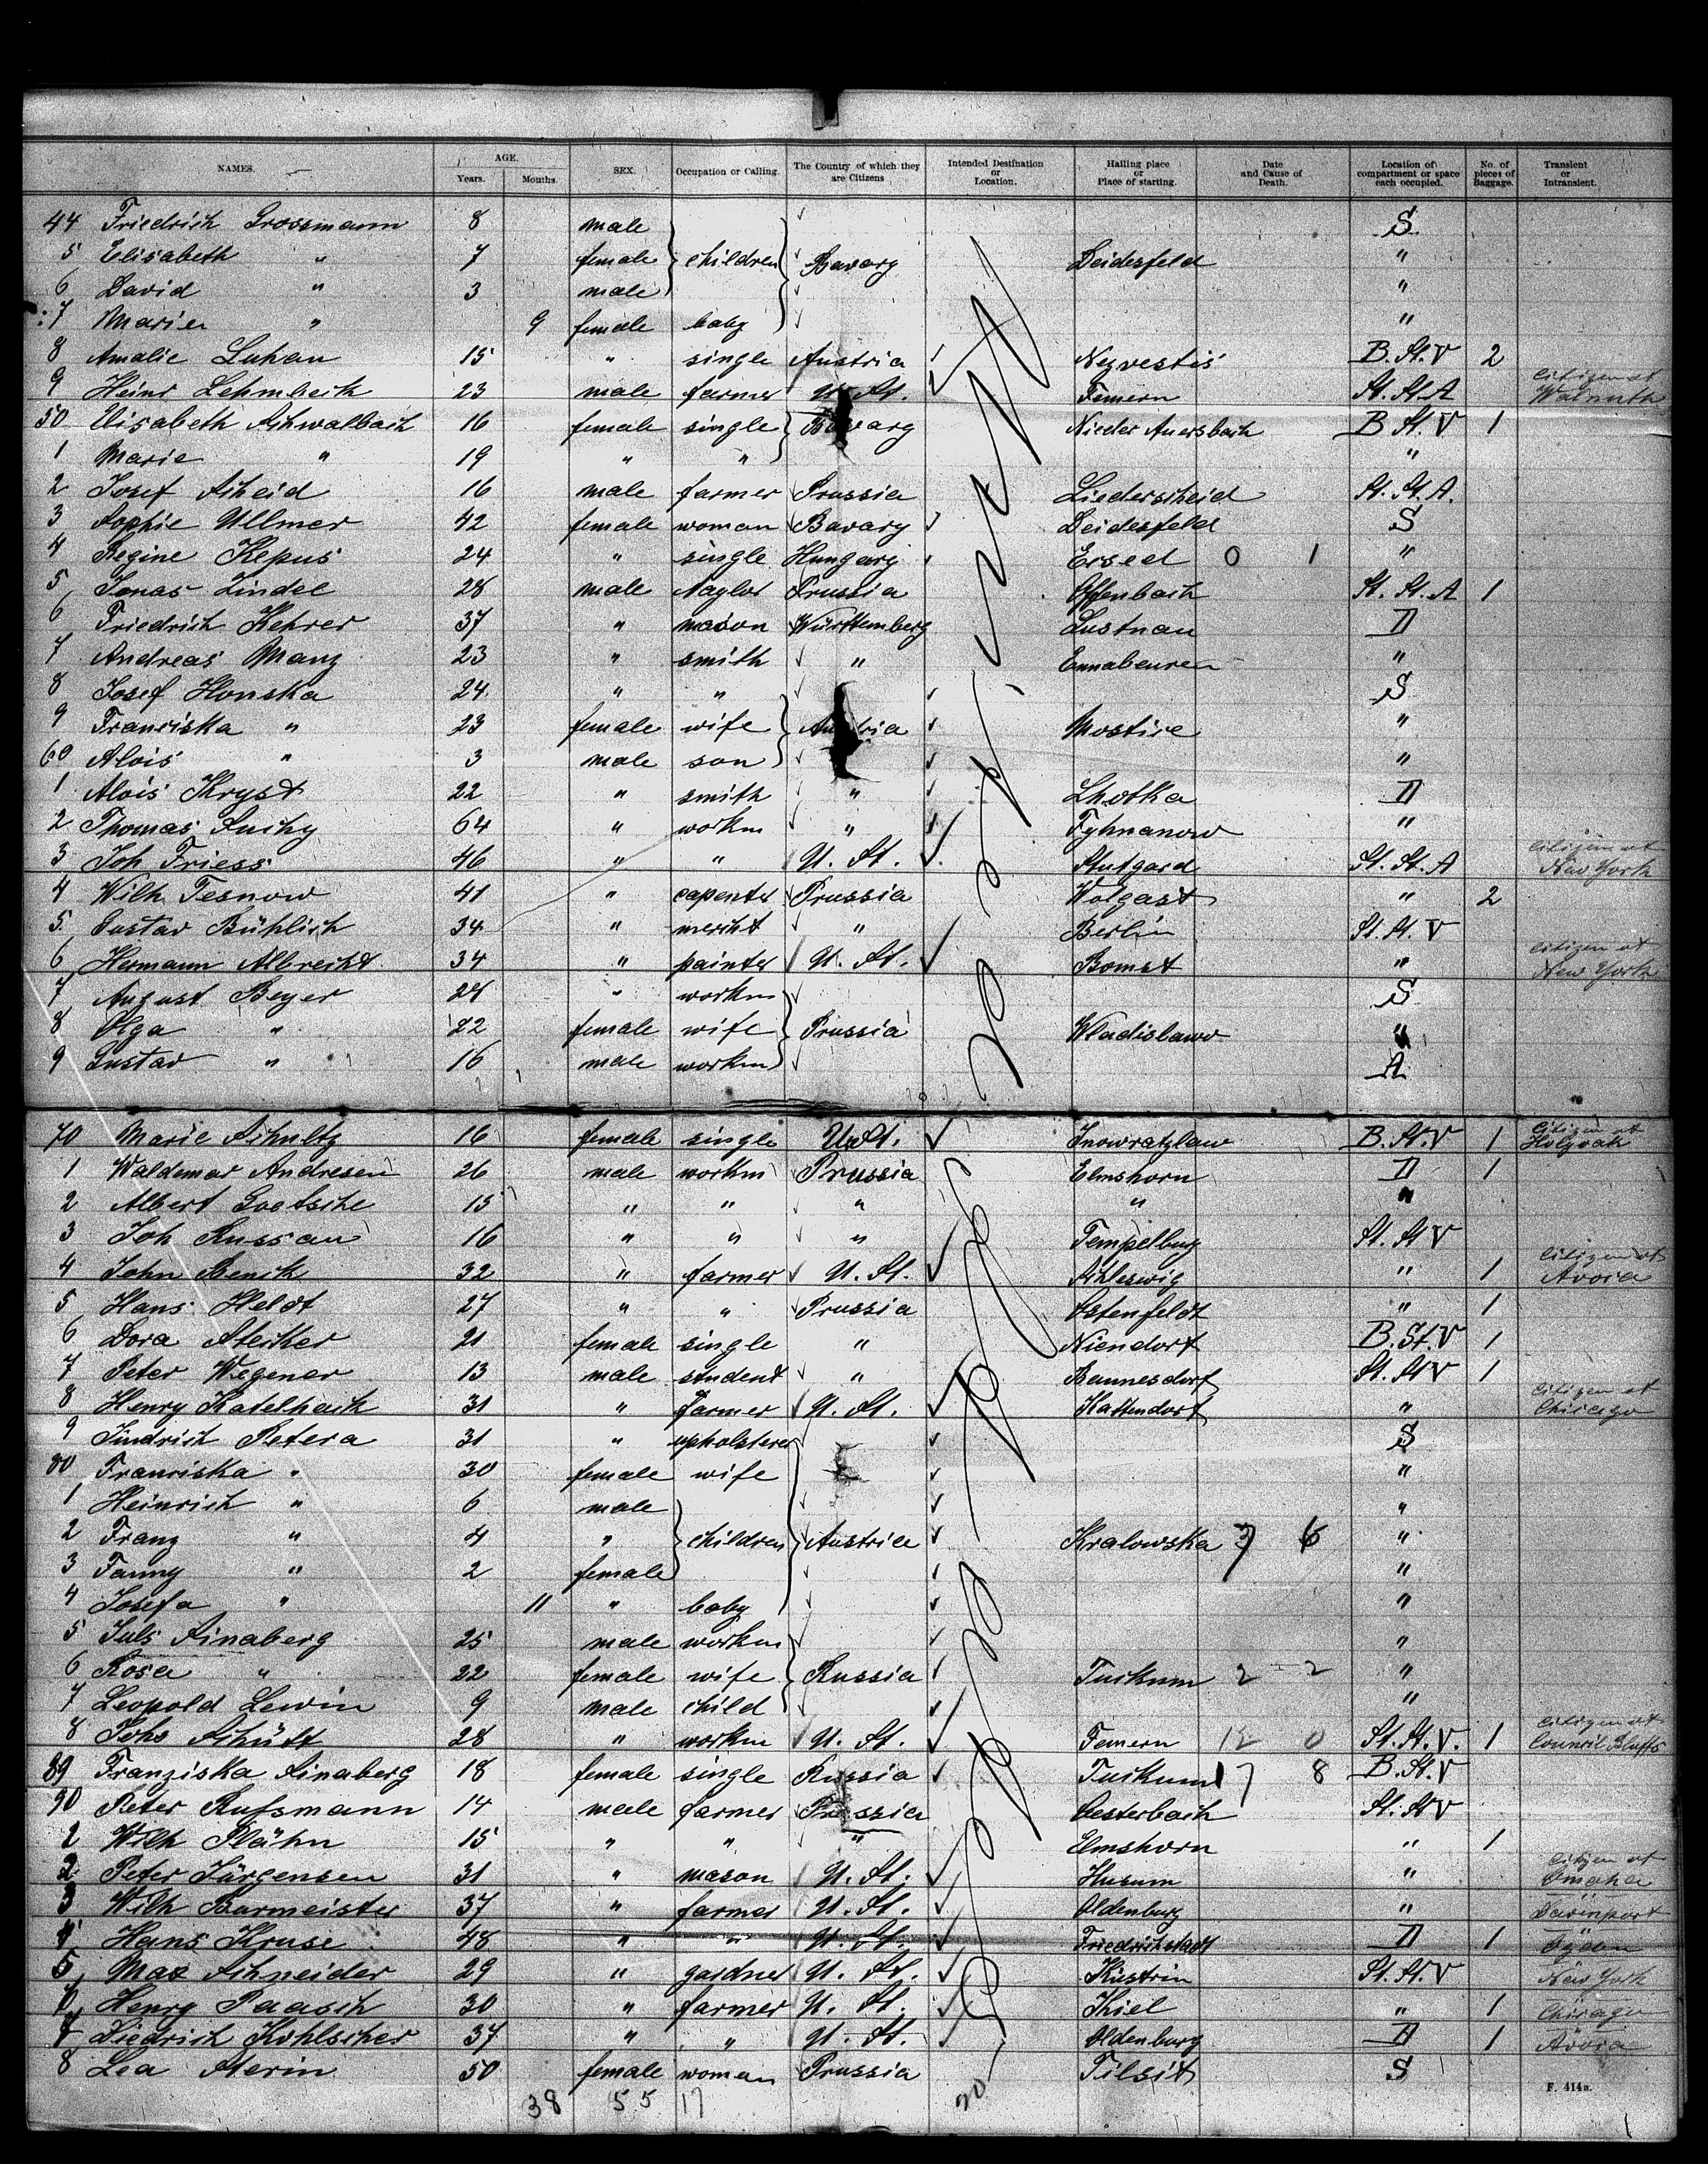 NAMES. AGE. Years. Months. SEX. Occupation or Calling. The Country of which they are Citizens Intended Destination or Location. Hailing place or Place of starting. Date and Cause of Death. Location of compartment or space each occupied. No. of pieces of Baggage. Transient or Intransient.
44 Friedrich Grossmann 8 male S
5 Elisabeth " 7 female children Bavary Deidesfeld "
6 David " 3 male "
7 Marie " 9 female baby "
8 Amalie Luhan 15 " single Austria B. St. V 2
9 Heinr Lehmbeck 23 male farmer U. St. Femern St. St. A citizen at
50 Elisabeth Schwalbach 16 female single Bavary Nieder Auersbach B St. V 1
1 Marie " 19 " " "
2 Josef Scheid 16 male farmer Prussia Liederscheid St. St. A.
3 Sophie Ullmer 42 female woman Bavary Deidesfeld S
4 Regine Kepus 24 " single Hungary Ersed 0 1 "
5 Jonas Lindel 28 male taylor Prussia Offenbach St. St. A 1
6 Friedrich Kehrer 37 " mason Württemberg Lustnau D
7 Andreas Manz 23 " smith " Ennabeuren "
8 Josef Honska 24 " " S
9 Franciska " 23 female wife Austria Mostice "
60 Alois " 3 male son "
1 Alois Kryst 22 " smith " Lhotka D
2 Thomas Suchy 64 " workm " Tyhnanow "
3 Joh Friess 46 " " U. St. Stutgard St. St. A citizen at New York
4 Wilh Tesnow 41 " capenter Prussia Wolgast " 2
5 Gustav Bühlich 34 " mercht " Berlin St. St. V
6 Hermann Albrecht 34 " painter U. St. Bomst " citizen at New York
7 August Beyer 24 " workm S
8 Olga " 22 female wife Prussia Wladislawo "
9 Gustav " 16 male workm A
70 Marie Schultz 16 female single U. St. Inowratzlaw B. St. V 1 citizen at
1 Waldemar Andresen 26 male workm Prussia Elmshorn D 1
2 Albert Goetsche 15 " " " " "
3 Joh Russau 16 " " " Tempelburg St. St V
4 John Schenck 32 " farmer U. St. Schleswig " 1 citizen at Avoca
5 Hans Heldt 27 " " Prussia Ostenfeldt " 1
6 Dora Stecker 21 female single " Niendorf B. St. V 1
7 Peter Wegener 13 male student " Bannesdorf St. St V 1
8 Henry Katelhack 31 " farmer U. St. Kattendorf " citizen at Chicago
9 Jindrich Petera 31 " upholsterer S
80 Franciska " 30 female wife "
1 Heinrich " 6 male "
2 Franz " 4 " children Austria Kralowska 3 6 "
3 Fanny " 2 female "
4 Josefa " 11 " baby "
5 Juls Sinaberg 25 male workm "
6 Rosa " 22 female wife Russia Tuckum 2 2 "
7 Leopold Lewin 9 male child "
8 Johs Schütt 28 " workm U. St. Femern 12 0 St. St. V. 1 citizen at Council Bluffs
89 Franziska Sinaberg 18 female single Russia Tuckum 17 8 B. St. V
90 Peter Rufsmann 14 male farmer Prussia Oesterbach St. St V
1 Wilh Plähn 15 " " " Elmshorn " 1
2 Peter Jürgensen 31 " mason U. St. Husum " citizen at Omaha
3 Wilh Burmeister 37 " farmer U. St. Oldenburg " Davenport
4 Hans Kruse 48 " " U. St. Friedrichstadt D 1 Ogden
5 Max Schneider 29 " gardner U. St. Küstrin St. St. V New York
6 Henry Paasch 30 " farmer U. St. Kiel " 1 Chicago
7 Diedrich Kohlscher 37 " " U. St. Oldenburg D 1 Avoca
8 Lea Sterin 50 female woman Prussia Tilsit S
F. 414a.
38 55 17